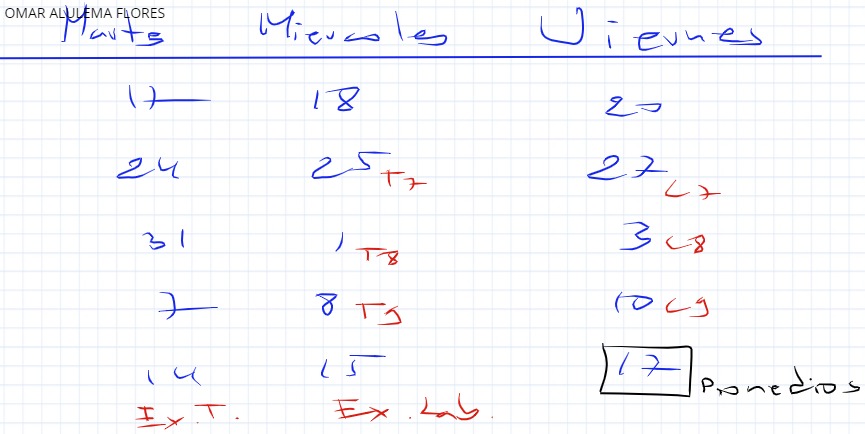 OMAR ALULEMA FLORES
Marts Miercoles Viernes
17 18 20
24 25 T7 27 L7
31 1 T8 3 L8
7 8 T9 10 L9
14 15 17 Promedios
Ex.T. Ex.Lab.